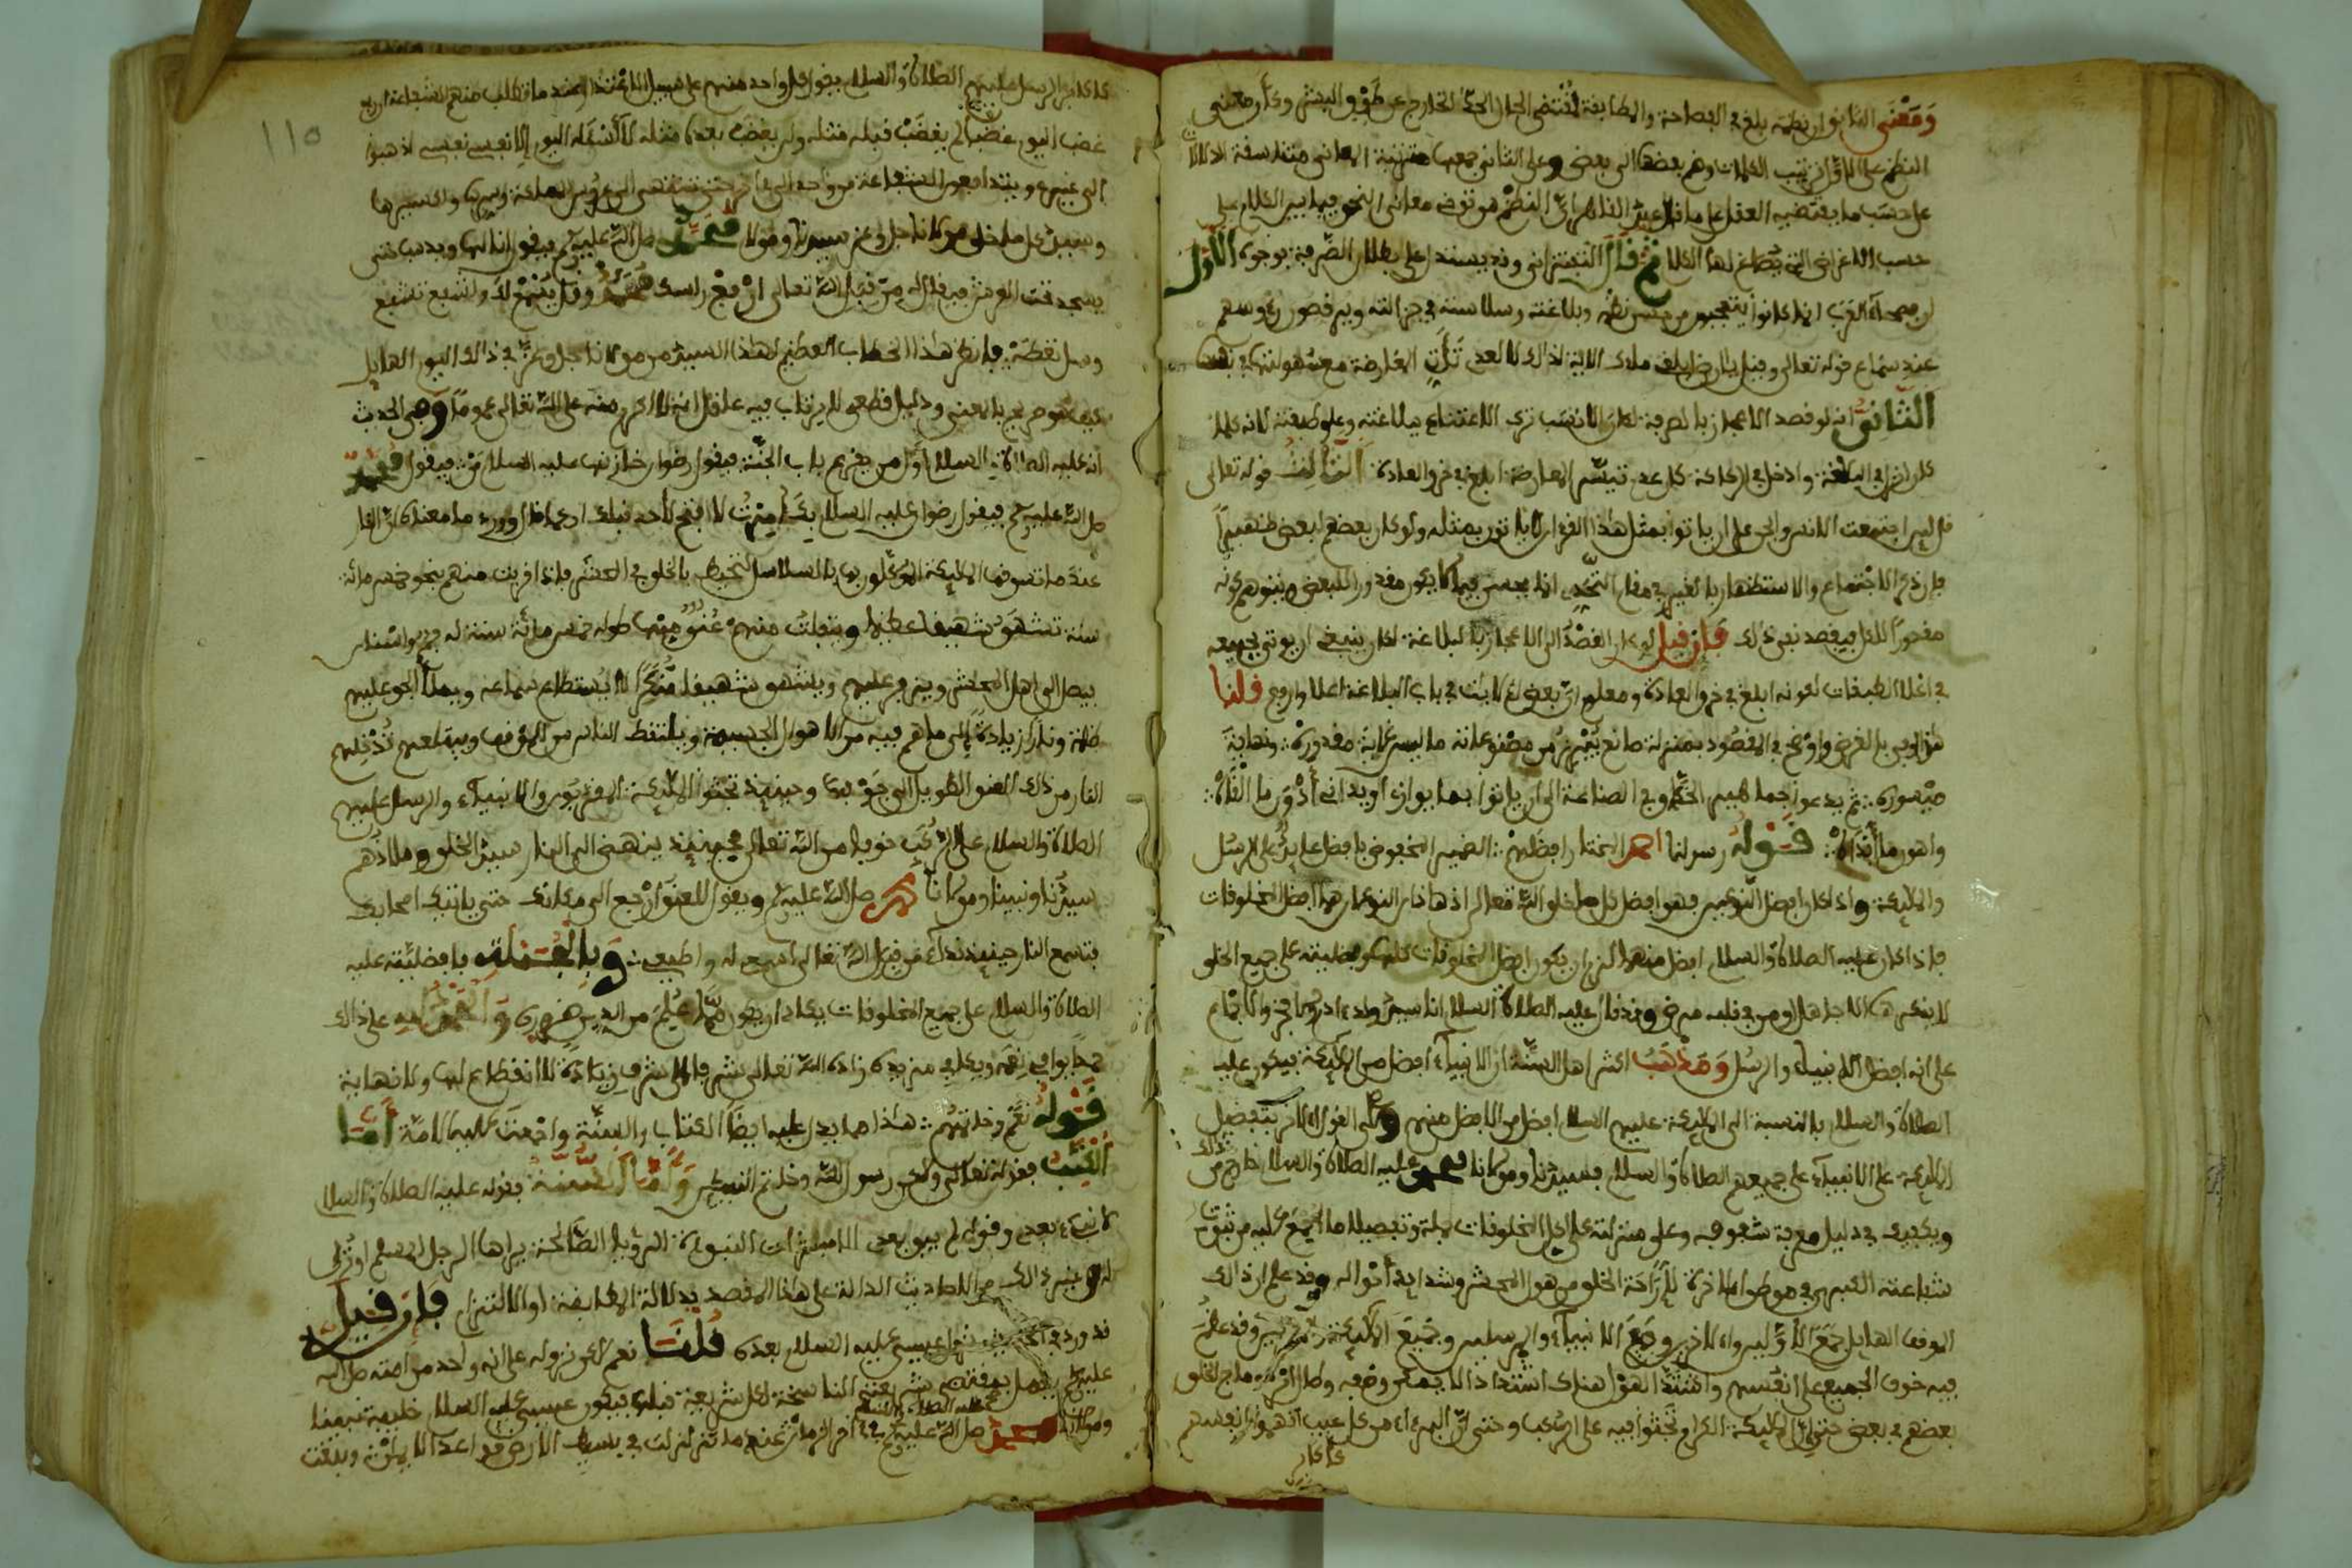 وَمَعْنَى الثاني ان نظمه بلغ في الفصاحة والمطابقة لمقتضى الحال الحد الخارج عن طوق البشر
النظم على الاول ترتيب الكلمات وضم بعضها الى بعض وعلى الثاني جمعها مترتبة المعاني متناسقة الدلالات
على حسب ما يقتضيه العقل على ما قال عبد القاهر ان النظم هو توخي معاني النحو فيما بين الكلام على
حسب الاغراض التي يصاغ لها الكلام ثم قال التفتزاني وقد يستدل على بطلان الصرفة بوجوه الأول
ان فصحاء العرب انما كانوا يتعجبون من حسن نظمه وبلاغته وسلاسته في جزالته ويرقصون رءوسهم
عند سماع قوله تعالى وقيل يا ارض ابلعي ماءك الاية لذلك لا لعدم تأتي المعارضة مع سهولتها في نفسها
الثاني انه لو قصد الاعجاز بالصرفة لكان الانسب ترك الاعتناء ببلاغته وعلو طبقته لانه كلما
كان انزل في البلاغة وادخل في الركاكة كان عدم تيسر المعارضة ابلغ في خرق العادة الثالث قوله تعالى
قل لين اجتمعت الانس والجن على ان ياتوا بمثل هذا القرءان لا ياتون بمثله ولو كان بعضهم لبعض ظهيرا
فان ذكر الاجتماع والاستظهار بالغير في مقام التحدي انما يحسن فيما لا يكون مقدورا للبعض ويتوهم كونه
مقدورا للكل فيقصد نفي ذلك فإن قيل لو كان القصد الى الاعجاز بالبلاغة لكان ينبغي ان يوتى بجميعه
في اعلا الطبقات لكونه ابلغ في خرق العادة ومعلوم ان بعض الايات في باب البلاغة اعلا وارفع قلنا
هذا اوفى بالغرض واوضح في المقصود بمنزلة صانع يبرز من مصنوعاته ما ليس غاية مقدوره ونهاية
ميسوره ثم يدعو جماهير الحذاق في الصناعة الى ان ياتوا بما يوازي او يداني أدون ما القاه
واهون ما أبداه قوله رسولنا احمد المختار افضلهم الضمير المخفوض بافضل عايد على الرسل
والمليكة واذا كان افضل النوعين فهو افضل كل ما خلق الله تعالى اذ هاذان النوعان هما افضل المخلوقات
فاذا كان عليه الصلاة والسلام افضل منهما لزم ان يكون افضل المخلوقات كلهم وافضليته على جميع الخلق
لا ينكرها الا جاهل او من في قلبه مرض وقد قال عليه الصلاة والسلام انا سيد ولد ءادم ولا فخر والاجماع
على انه افضل الانبياء والرسل وَمَذْهَبُ اكثر اهل السنة ان الانبياء افضل من المليكة فيكون عليه
الصلاة والسلام بالنسبة الى المليكة عليهم السلام افضل من الافضل منهم وعلى القول الاخر بتفضيل
المليكة على الانبياء على جميعهم الصلاة والسلام فسيدنا ومولانا محمد عليه الصلاة والسلام خارج من ذلك
ويكفيك في دليل معرفة شفوفه وعلو منزلته على كل المخلوقات جملة وتفصيلا ما اجمع عليه من ثبوت
شفاعته الكبرى في مواطن الاخرة لإراحة الخلق من هول المحشر وشدايد أحواله وقد علم ان ذلك
الموقف الهايل جمع الأولين والاخرين وجمع الانبياء والمرسلين وجميع المليكة وقد عظم
فيه خوف الجميع على انفسهم واشتد الهول هنالك اشتدادا لا يمكن وصفه
بعضهم في بعض حتى ان المليكة الكرام تجثوا فيه على الركب وحتى ان البرءاء من كل عيب اتهموا انفسهم
كأكابر
١١٥
كأكابر الرسل عليهم الصلاة والسلام يقول كل واحد منهم على سبيل الاعتذار عند ما تطلب منهم الشفاعة ان ربي
غضب اليوم غضبا لم يغضب قبله مثله ولن يغضب بعده مثله لا أسئله اليوم إلا نفسي نفسي اذهبوا
الى غيري ويتدافعون الشفاعة من واحد الى اخر حتى تنتهي الى عروس المملكة وسرها واكسيرها
وسيد كل ما خلق مولانا جل وعز سيدنا ومولانا محمد صلى الله عليه وسلم فيقول انا لها ويذهب حتى
يسجد تحت العرش فيقال له من قبل الله تعالى ارفع راسك محمد وقل يسمع لك واشفع تشفع
وسل تعطه فانظر هذا الخطاب العظيم لهذا السيد من مولانا جل وعز في ذلك اليوم الهايل
كيف هو صريح بالمعنى ودليل قطعي لا يرتاب فيه عاقل انه لا اكرم منه على الله تعالى عموما وفي الحديث
انه عليه الصلاة والسلام اول من يقرع باب الجنة فيقول رضوان خازنها عليه السلام من فيقول محمد
صلى الله عليه وسلم فيقول رضوان عليه السلام بك أمرت لا افتح لأحد قبلك او كما قال وورد ما معناه ان النار
عند ما تسوقها المليكة الموكلون بها بالسلاسل لتحيط بالخلق في المحشر فاذا قربت منهم بنحو خمس مائة
سنة تشهق شهيقا عظيما وينفلت منهم عنق منها طوله خمس مائة سنة له
فيصل الى اهل المحشر ويزفر عليهم ويشهق شهيقا منكرا لا يستطاع سماعه ويملأ الجو عليهم
ظلمة ونارا زيادة الى ما هم فيه من الاهوال الجسيمة ويلتقط الناس من الموقف ويبتلعهم تدخلهم
النار من ذلك العنق الطويل الى جوفها وحينئذ تجثوا المليكة المقربون والانبياء والرسل عليهم
الصلاة والسلام على الركب خوفا من الله تعالى فحينئذ ينهض الى النار سيد الخلق وملاذهم
سيدنا ونبينا ومولانا محمد صلى الله عليه وسلم ويقول للعنق ارجع الى مكانك حتى ياتيك اصحابك
فتسمع النار حينئذ نداء من قبل الله تعالى اسمعي له واطيعي وبالجملة فافضليته عليه
الصلاة والسلام على جميع المخلوقات يكاد ان يكون مما علم من الدين ضرورة والحمد لله على ذلك
حمدا يوافي نعمه ويكافي مزيده زاده الله تعالى شرفا الى شرف زيادة لا انقطاع لها ولا نهاية
قوله نعم وخاتمهم هذا مما يدل عليه ايضا الكتاب والسنة واجمعت عليه الامة أَمَّا
الكِتَبُ فقوله تعالى ولكن رسول الله وخاتم النبيين وأما السُّنة فقوله عليه الصلاة والسلام
لا نبيء بعدي وقوله لم يبق بعدي الا مبشرات النبوءة الرءيا الصالحة يراها الرجل المسلم او ترى
له وغير ذلك من الاحاديث الدالة على هذا المقصد بدلالة المطابقة او الالتزام فإن قيل
قد ورد في الحديث نزول عيسى عليه السلام بعده قلنا نعم لاكن نزوله على انه واحد من امته صلى الله
عليه وسلم يعمل بمقتضى شريعته الناسخة لكل شريعة قبلها فيكون عيسى عليه السلام خليفة نبينا
عليه الصلاة والسلام
ومولانا محمد صلى الله عليه وسلم في ءاخر الزمان عند ما تزلزلت في بسيط الارض قواعد الايمان وبقيت